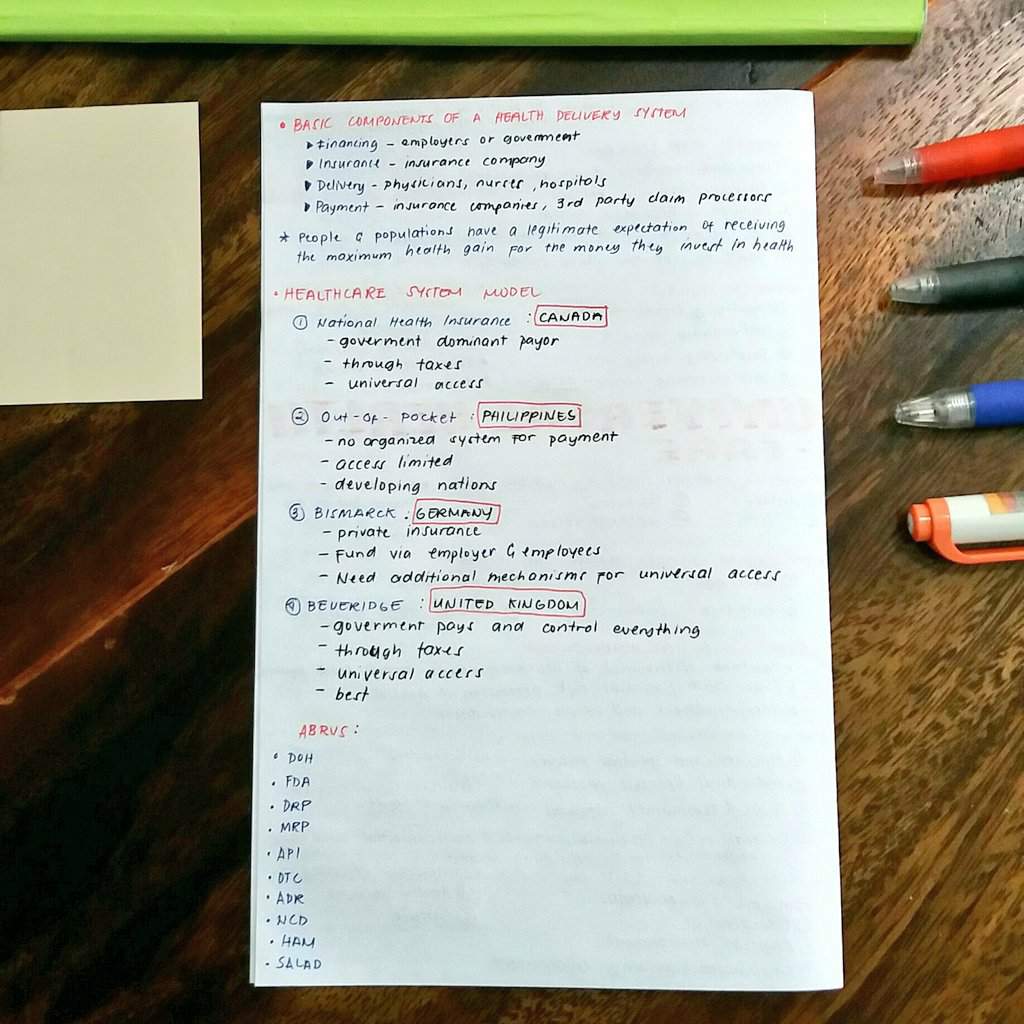 • BASIC COMPONENTS OF A HEALTH DELIVERY SYSTEM
▶ Financing - employers or government
▶ Insurance - insurance company
▶ Delivery - physicians, nurses, hospitals
▶ Payment - insurance companies, 3rd party claim processors
* People & populations have a legitimate expectation of receiving
the maximum health gain for the money they invest in health
• HEALTHCARE SYSTEM MODEL
① National Health Insurance : CANADA
- goverment dominant payor
- through taxes
- universal access
② Out-Of-Pocket : PHILIPPINES
- no organized system for payment
- access limited
- developing nations
③ BISMARCK : GERMANY
- private insurance
- Fund via employer & employees
- Need additional mechanisms for universal access
④ BEVERIDGE : UNITED KINGDOM
- goverment pays and control everything
- through taxes
- universal access
- best
ABRVS :
• DOH
• FDA
• DRP
• MRP
• API
• OTC
• ADR
• NCD
• HAM
• SALAD